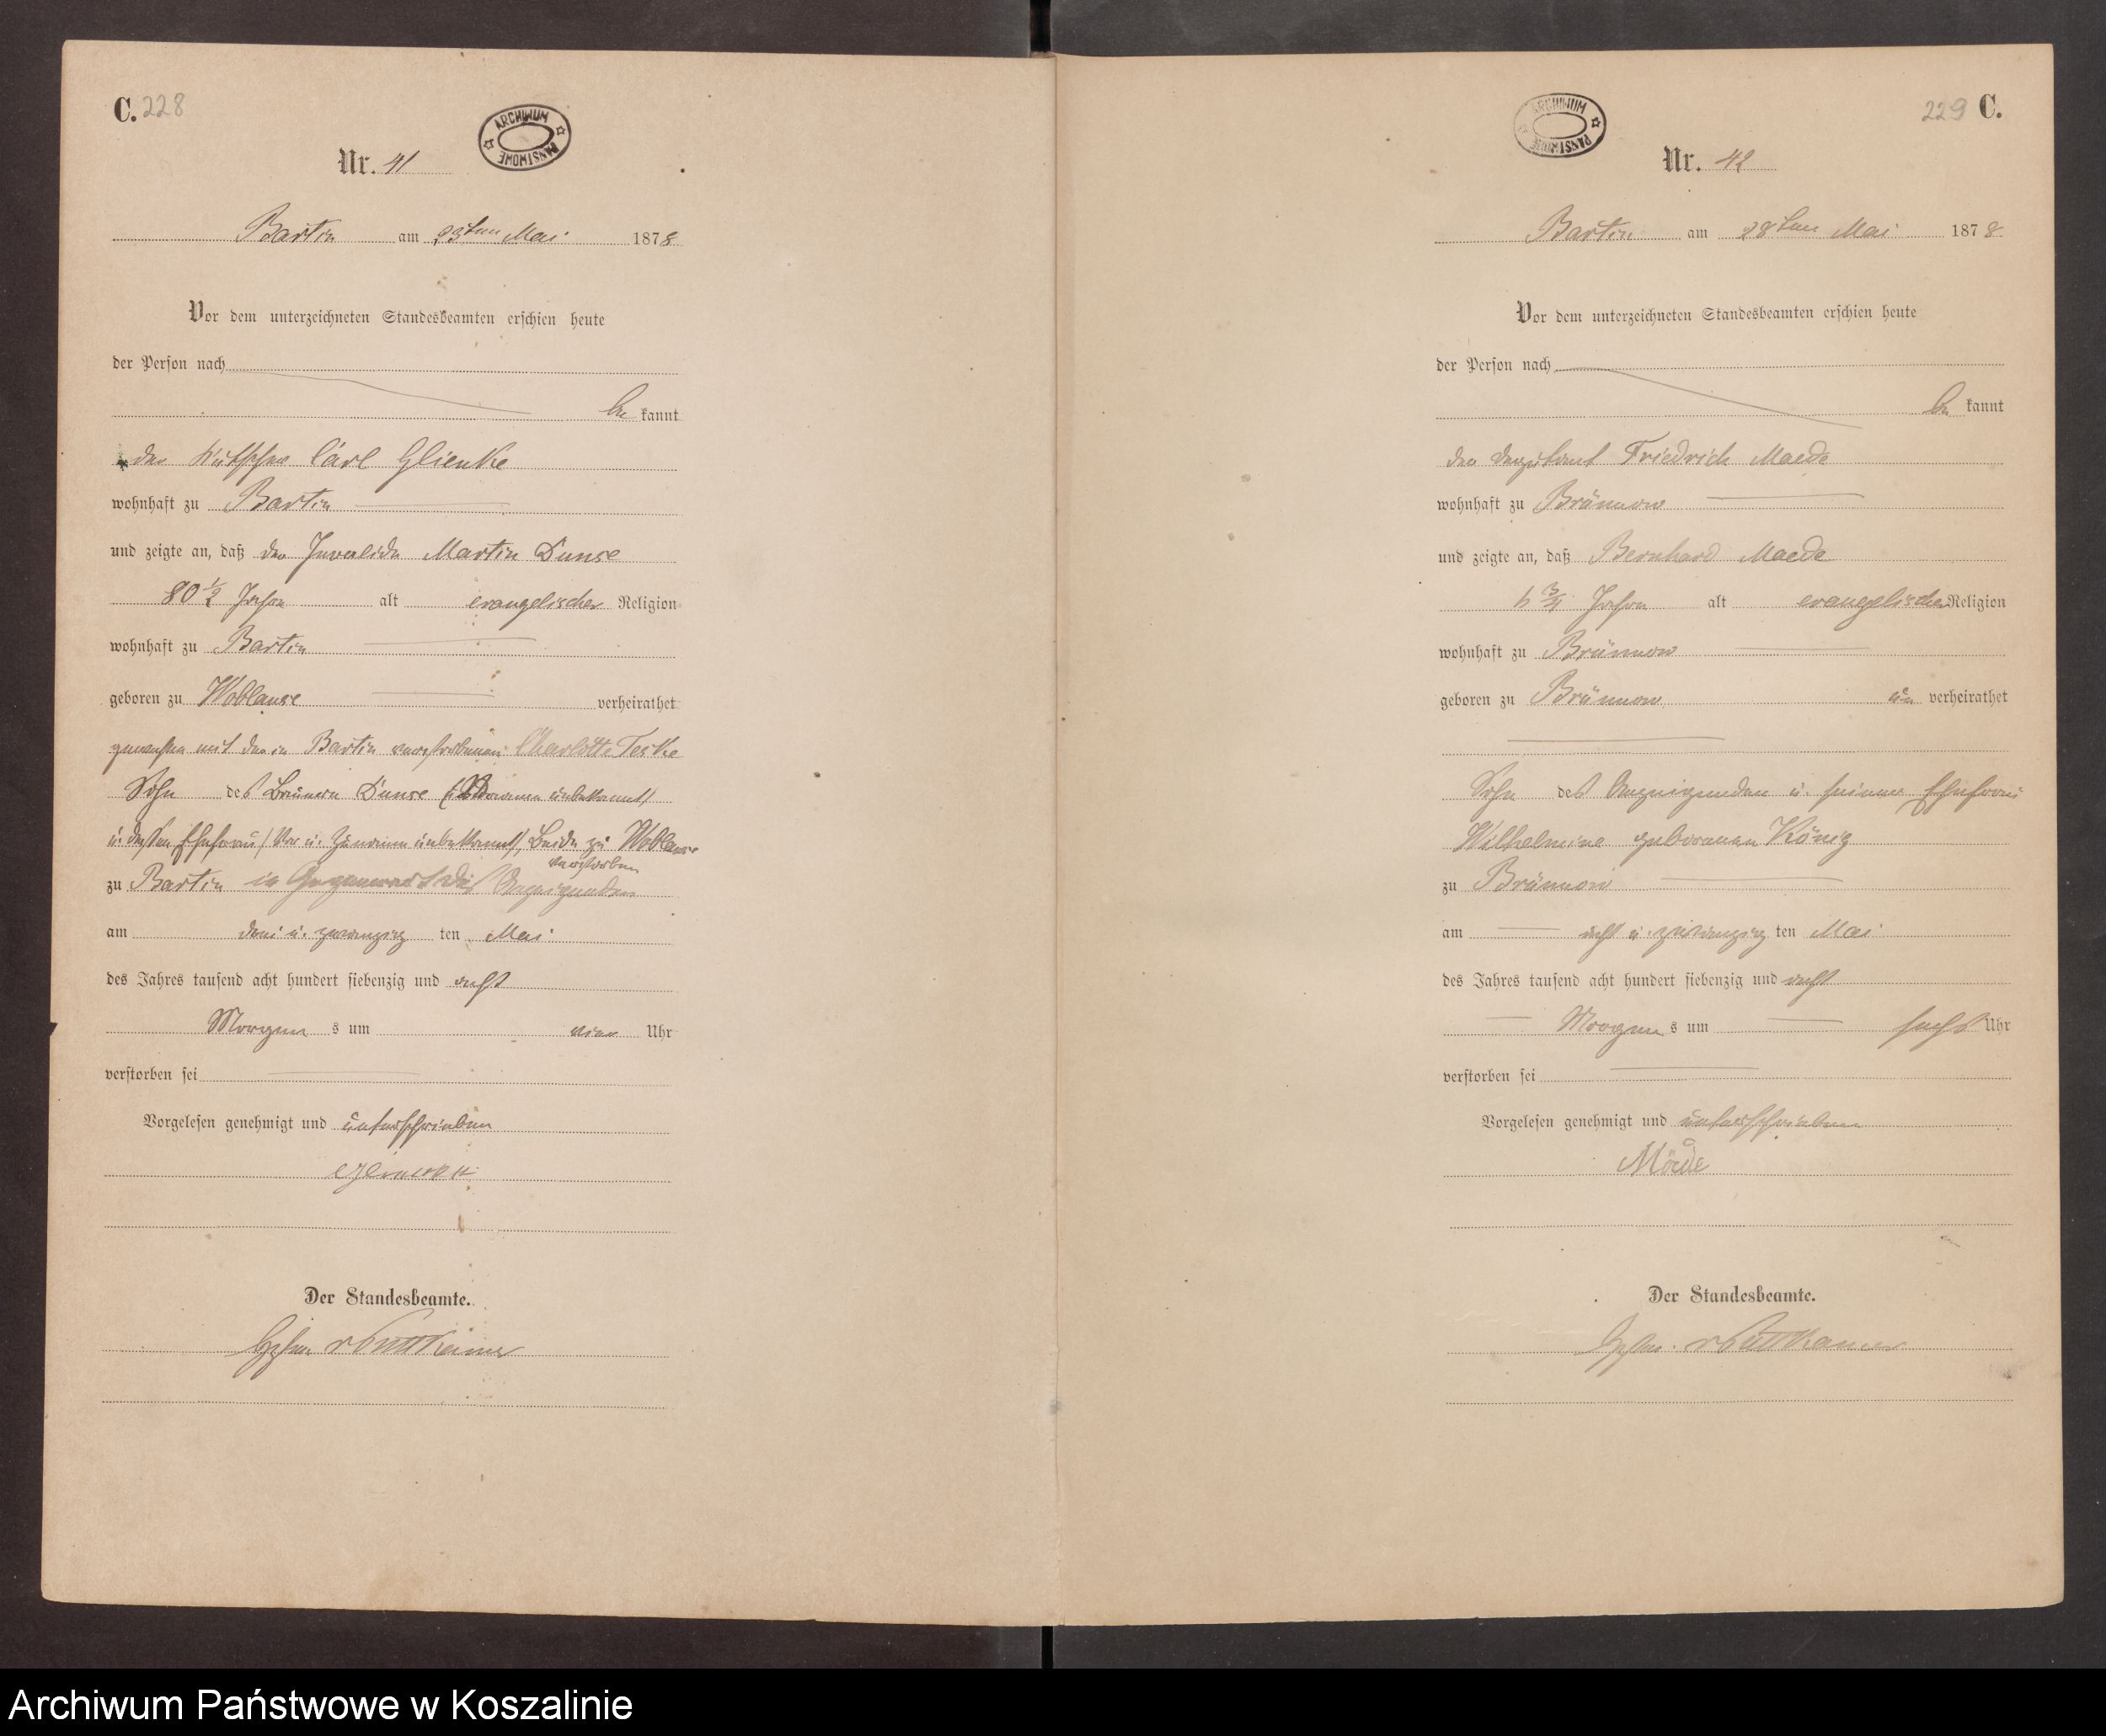 C. 228
ARCHIWUM PAŃSTWOWE
Nr. 41
Bartin am 23ten Mai 1878
Vor dem unterzeichneten Standesbeamten erschien heute
der Person nach
be kannt
der Kutscher Carl Glienke
wohnhaft zu Bartin
und zeigte an, daß der Invalide Martin Dunse
80 1/2 Jahre alt evangelischer Religion
wohnhaft zu Bartin
geboren zu Woblanse verheirathet
gewesen mit der in Bartin verstorbenen Charlotte Teske
Sohn des Bauern Dunse (Vornamen unbekannt)
u. dessen Ehefrau (Vor u. Zuname unbekannt), Beide zu Woblanse
verstorben
zu Bartin in Gegenwart des Anzeigenden
am drei u. zwanzig ten Mai
des Jahres tausend acht hundert siebenzig und acht
Morgen s um vier Uhr
verstorben sei
Vorgelesen genehmigt und unterschrieben
Der Standesbeamte.
v Puttkamer
229 C.
ARCHIWUM PAŃSTWOWE
Nr. 42
Bartin am 28ten Mai 1878
Vor dem unterzeichneten Standesbeamten erschien heute
der Person nach
be kannt
der Deputant Friedrich Maede
wohnhaft zu Brünnow
und zeigte an, daß Bernhard Maede
3/4 Jahre alt evangelischer Religion
wohnhaft zu Brünnow
geboren zu Brünnow un verheirathet
Sohn des Anzeigenden u. seiner Ehefrau
Wilhelmine geborenen König
zu Brünnow
am acht u. zwanzig ten Mai
des Jahres tausend acht hundert siebenzig und acht
Morgen s um sechs Uhr
verstorben sei
Vorgelesen genehmigt und unterschrieben
Möede
Der Standesbeamte.
v Puttkamer
Archiwum Państwowe w Koszalinie